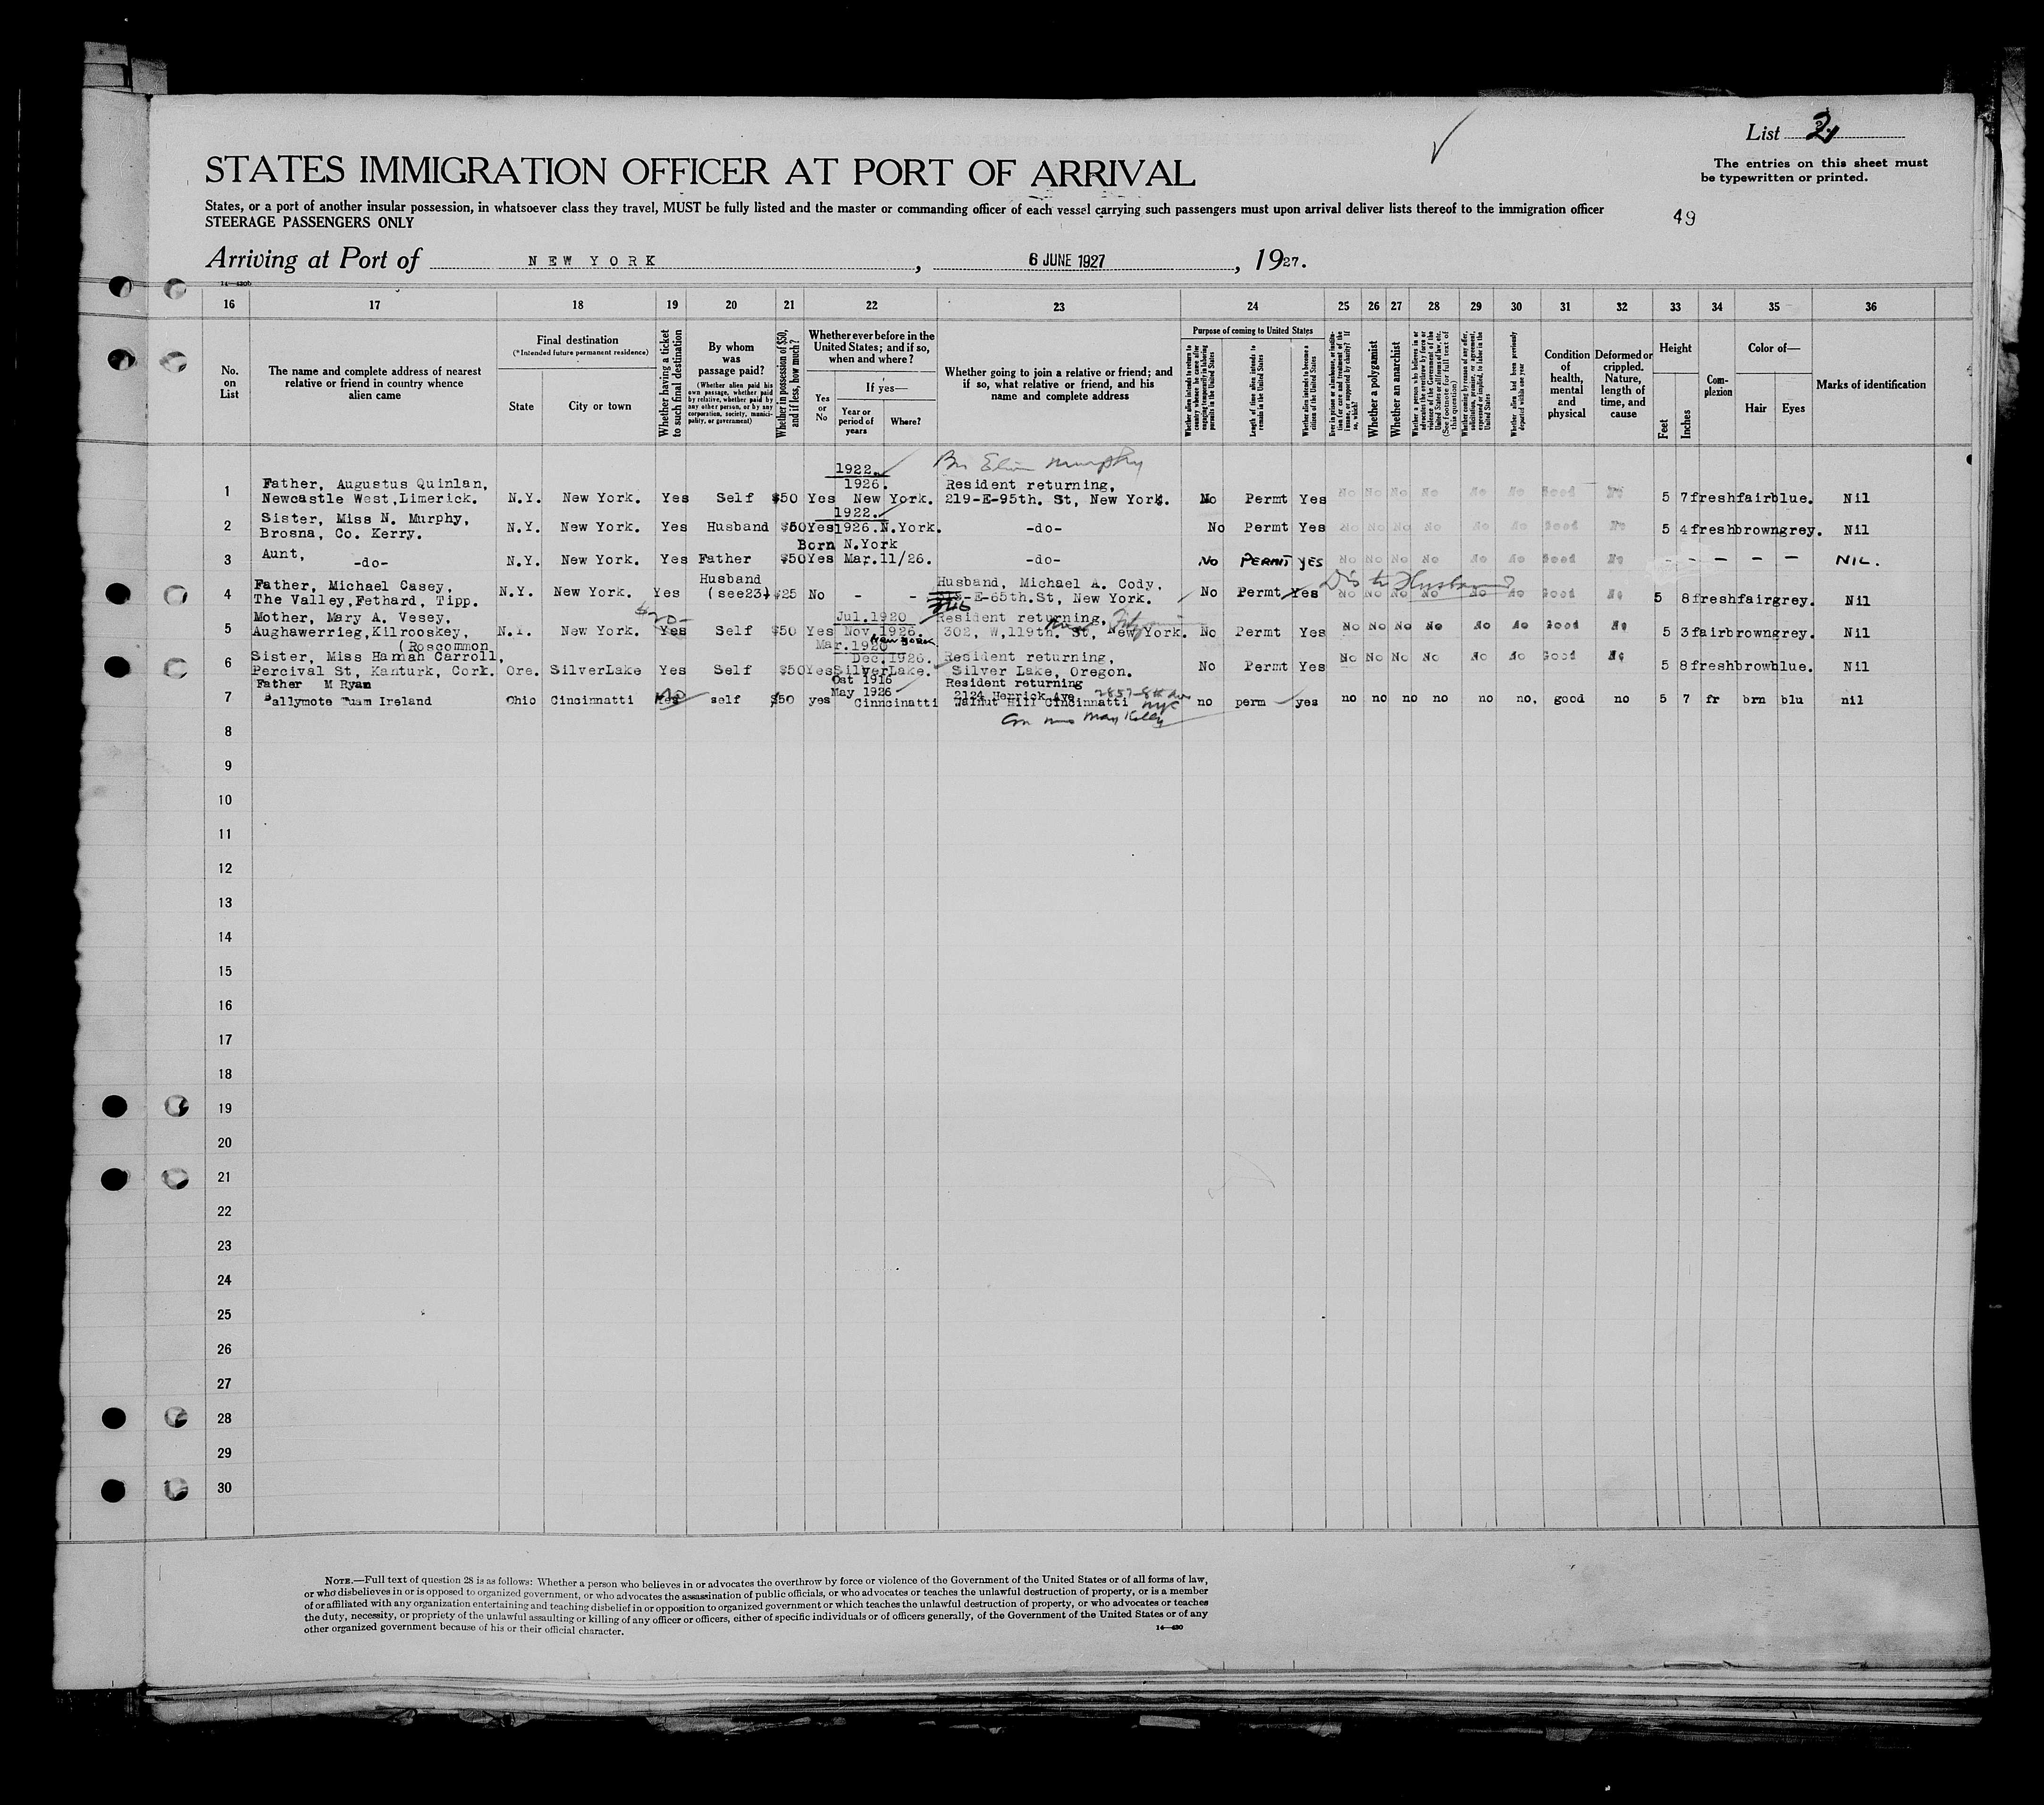 List 2
The entries on this sheet must
be typewritten or printed.
STATES IMMIGRATION OFFICER AT PORT OF ARRIVAL
States, or a port of another insular possession, in whatsoever class they travel, MUST be fully listed and the master or commanding officer of each vessel carrying such passengers must upon arrival deliver lists thereof to the immigration officer
STEERAGE PASSENGERS ONLY
49
Arriving at Port of NEW YORK, 6 JUNE 1927, 1927.
14—420b
16 17 18 19 20 21 22 23 24 25 26 27 28 29 30 31 32 33 34 35 36
No. on List
The name and complete address of nearest relative or friend in country whence alien came
Final destination
(*Intended future permanent residence)
State
City or town
Whether having a ticket to such final destination
By whom was passage paid?
(Whether alien paid his own passage, whether paid by relative, whether paid by any other person, or by any corporation, society, municipality, or government)
Whether in possession of $50, and if less, how much?
Whether ever before in the United States; and if so, when and where?
Yes or No
If yes—
Year or period of years
Where?
Whether going to join a relative or friend; and if so, what relative or friend, and his name and complete address
Purpose of coming to United States
Length of time alien intends to remain in the United States
Whether alien intends to become a citizen of the United States
Whether a polygamist
Whether an anarchist
Whether alien had been previously deported within one year
Condition of health, mental and physical
Deformed or crippled. Nature, length of time, and cause
Height
Feet
Inches
Complexion
Color of—
Hair
Eyes
Marks of identification
1922. Elin Murphy
Father, Augustus Quinlan, 1926. Resident returning,
1 Newcastle West,Limerick. N.Y. New York. Yes Self $50 Yes New York. 219-E-95th. St, New York. No Permt Yes No No No No No No Good No 5 7 fresh fair blue. Nil
Sister, Miss N. Murphy, 1922.
2 Brosna, Co. Kerry. N.Y. New York. Yes Husband $50 Yes 1926. N.York. -do- No Permt Yes No No No No No No Good No 5 4 fresh brown grey. Nil
Aunt, Born N.York
3 -do- N.Y. New York. Yes Father $50 Yes Mar.11/26. -do- No PERMT YES No No No No No No Good No - - - - - NIL.
Father, Michael Casey, Husband Husband, Michael A. Cody, Dis to Husband
4 The Valley,Fethard, Tipp. N.Y. New York. Yes (see23) $25 No - - 346 -E-65th.St, New York. No Permt Yes No No No No No No Good No 5 8 fresh fair grey. Nil
Mother, Mary A. Vesey, Jul.1920 Resident returning,
5 Aughawerrieg,Kilrooskey, N.Y. New York. Yes Self $50 Yes Nov 1926. New York 302, W,119th. St, New York. No Permt Yes No No No No No No Good No 5 3 fair brown grey. Nil
(Roscommon Mar.1920
Sister, Miss Hannah Carroll, Dec.1926. Resident returning,
6 Percival St, Kanturk, Cork. Ore. SilverLake Yes Self $50 Yes SilverLake. Silver Lake, Oregon. No Permt Yes No No No No No No Good No 5 8 fresh brown blue. Nil
Father M Ryan Oct 1916 Resident returning
7 Ballymote Tuam Ireland Ohio Cincinnatti No self $50 yes May 1926 Cinncinatti 2124 Henrick Ave Walnut Hill Cincinnatti 2857-8th Av NYC no perm yes no no no no no no. good no 5 7 fr brn blu nil
Mrs May Kelly
8
9
10
11
12
13
14
15
16
17
18
19
20
21
22
23
24
25
26
27
28
29
30
NOTE.—Full text of question 28 is as follows: Whether a person who believes in or advocates the overthrow by force or violence of the Government of the United States or of all forms of law,
or who disbelieves in or is opposed to organized government, or who advocates the assassination of public officials, or who advocates or teaches the unlawful destruction of property, or is a member
of or affiliated with any organization entertaining and teaching disbelief in or opposition to organized government or which teaches the unlawful destruction of property, or who advocates or teaches
the duty, necessity, or propriety of the unlawful assaulting or killing of any officer or officers, either of specific individuals or of officers generally, of the Government of the United States or of any
other organized government because of his or their official character.
14—420